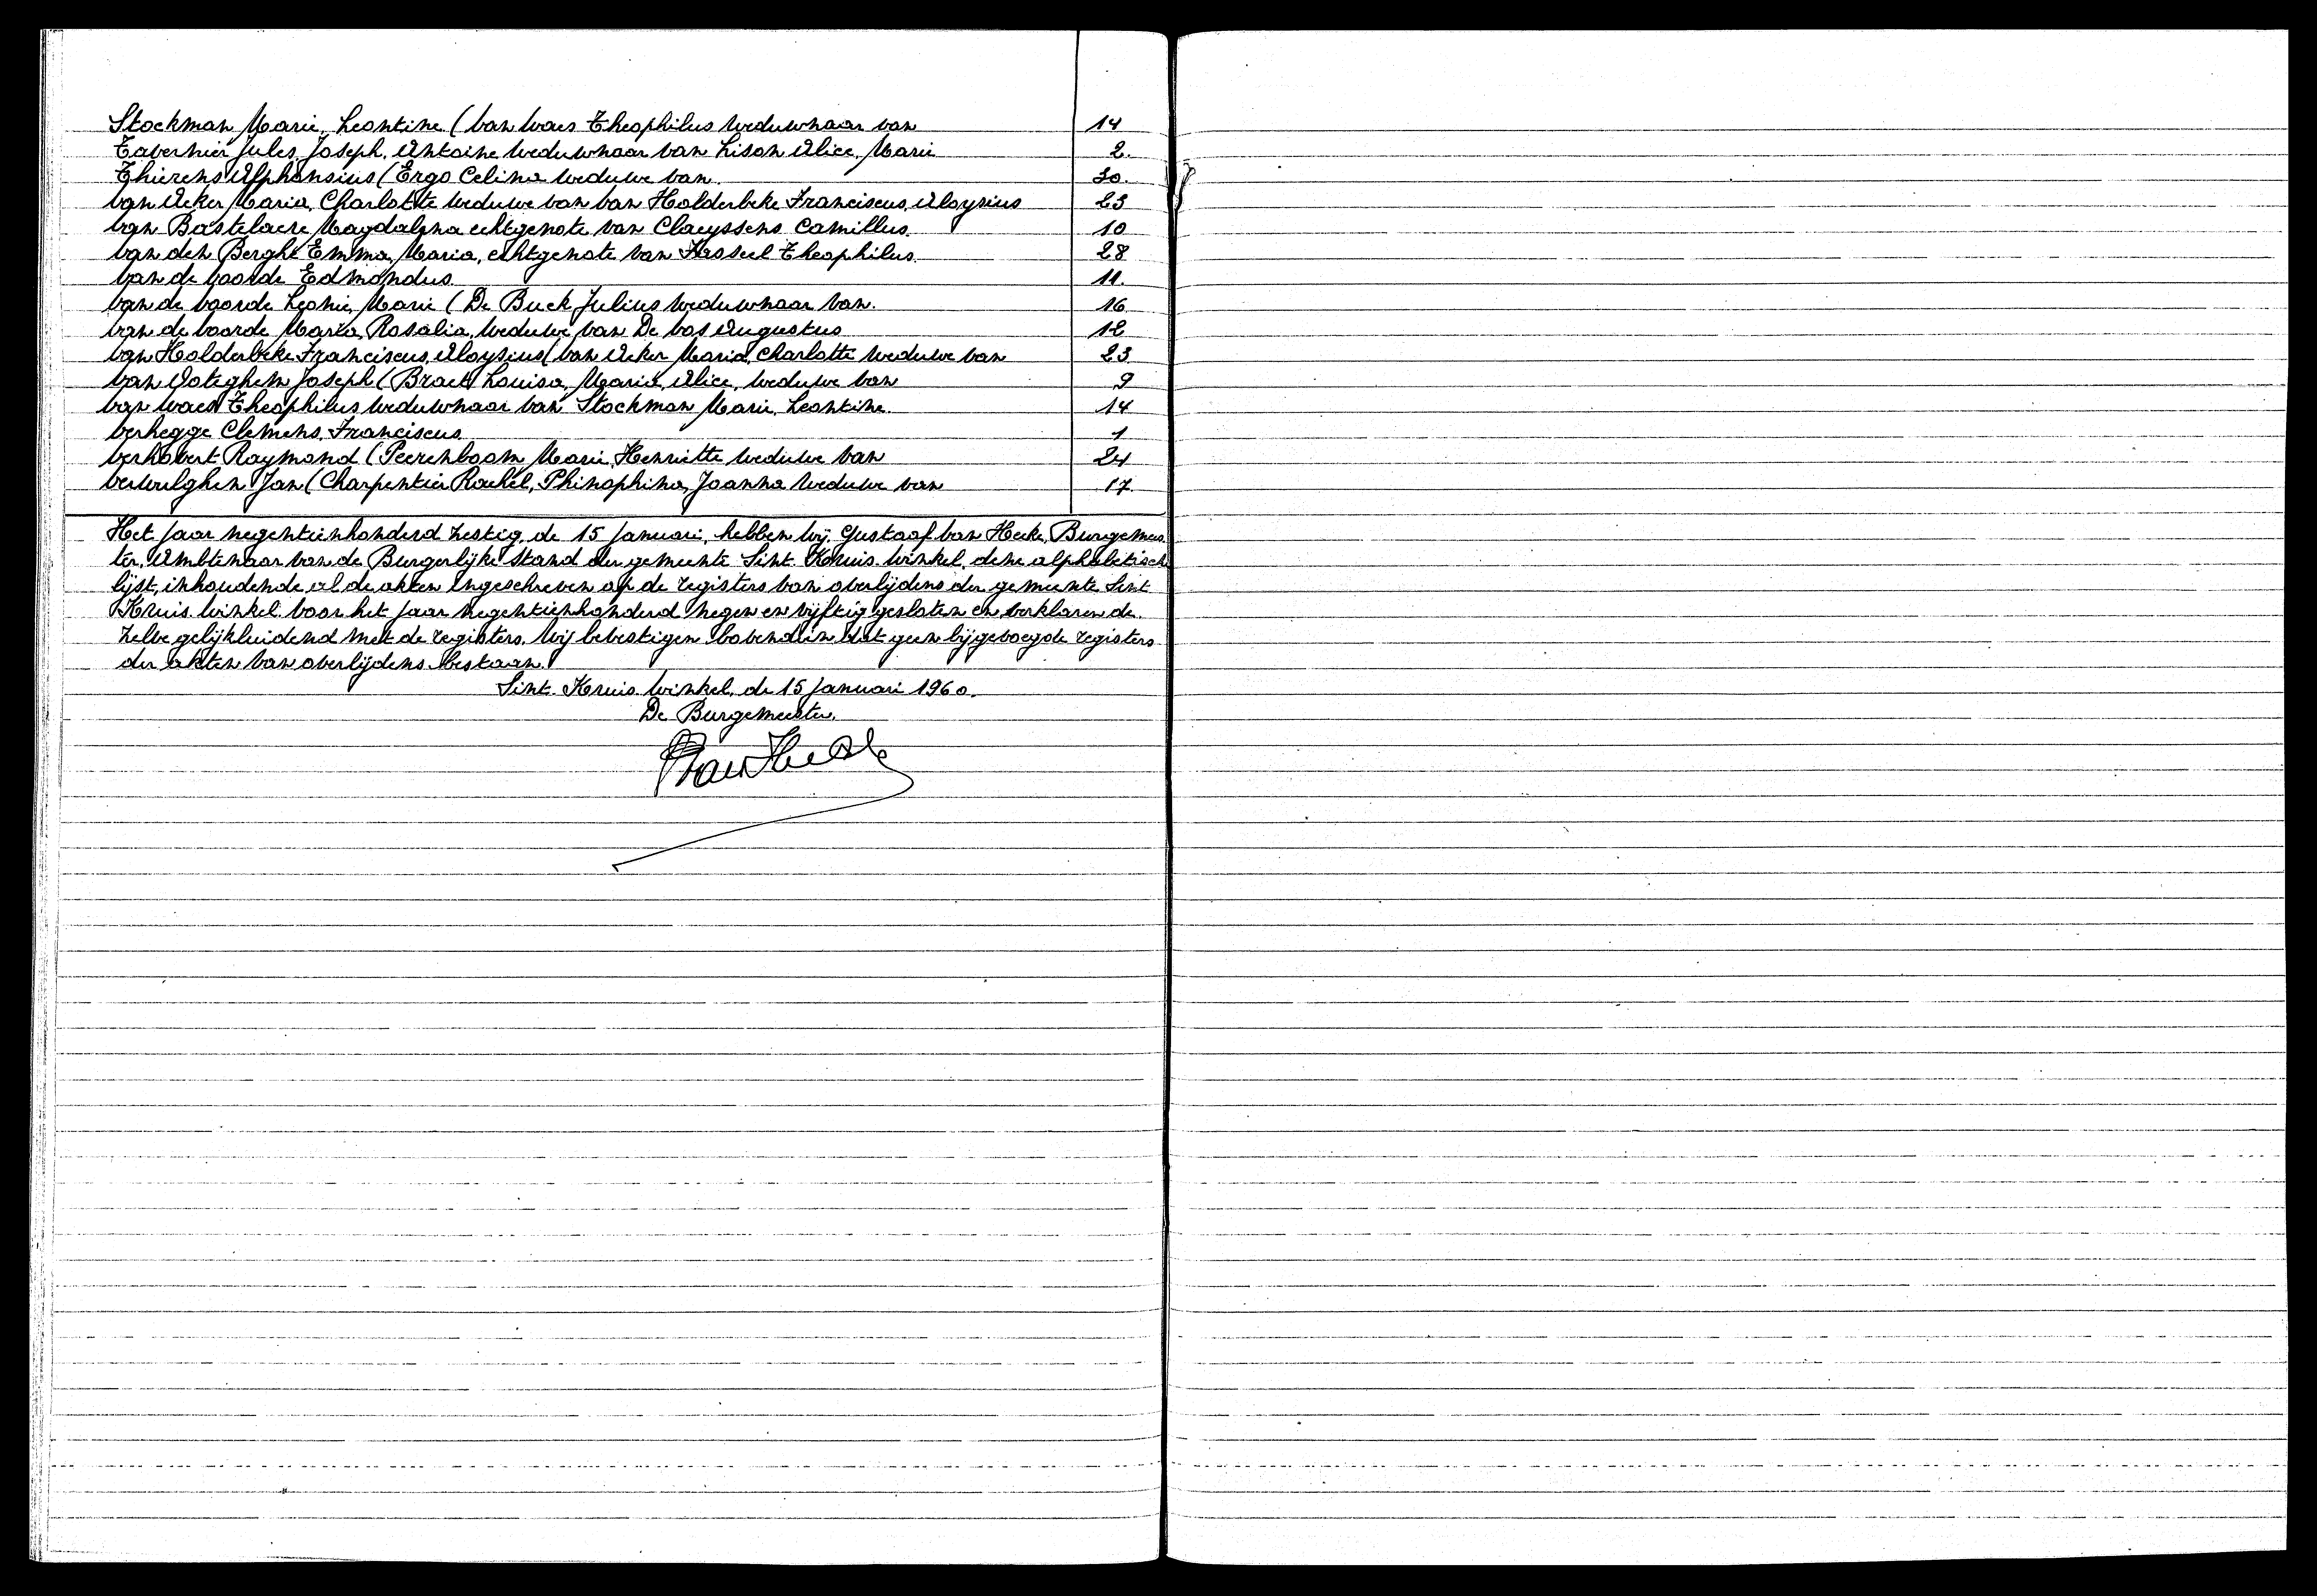 Stockman Marie, Leontine (Van Waes Theophilus weduwnaar van 14
Tavernier Jules, Joseph, Antoine weduwnaar van Lison Alice, Marie 2.
Thierens Alphonsius (Ergo Celina weduwe van 30.
Van Acker Maria, Charlotte weduwe van Van Holderbeke Franciscus, Aloysius 23
Van Bastelaere Magdalena echtgenote van Claeyssens Camillus. 10
Van den Berghe Emma, Maria, echtgenote van Hasseel Theophilus. 28
Van de Voorde Edmondus. 11.
Van de Voorde Leonie, Marie (De Buck Julius weduwnaar van. 16
Van de Voorde Maria, Rosalia, weduwe van De Vos Augustus 12
Van Holderbeke Franciscus, Aloysius (Van Acker Maria, Charlotte weduwe van 23
Van Ooteghem Joseph (Braet Louisa, Maria, Alice, weduwe van 9
Van Waes Theophilus weduwnaar van Stockman Marie, Leontine. 14
Verhegge Clemens, Franciscus 1
Verhovert Raymond (Peerenboom Marie, Henriette weduwe van 24
Verwilghen Jan (Charpentier Rachel, Philophina, Joanna weduwe van 17.
Het jaar negentienhonderd zestig, de 15 januari, hebben wij, Gustaaf Van Hecke, Burgemees
ter, Ambtenaar van de Burgerlijke stand der gemeente Sint-Kruis-Winkel, deze alphabetische
lijst, inhoudende al de akten ingeschreven op de registers van overlijdens der gemeente Sint
Kruis-Winkel voor het jaar negentienhonderd negen en vijftig gesloten en verklaren de
zelve gelijkluidend met de registers. Wij bevestigen bovendien dat geen bijgevoegde registers
der akten van overlijdens bestaan.
Sint-Kruis-Winkel, de 15 januari 1960.
De Burgemeester,